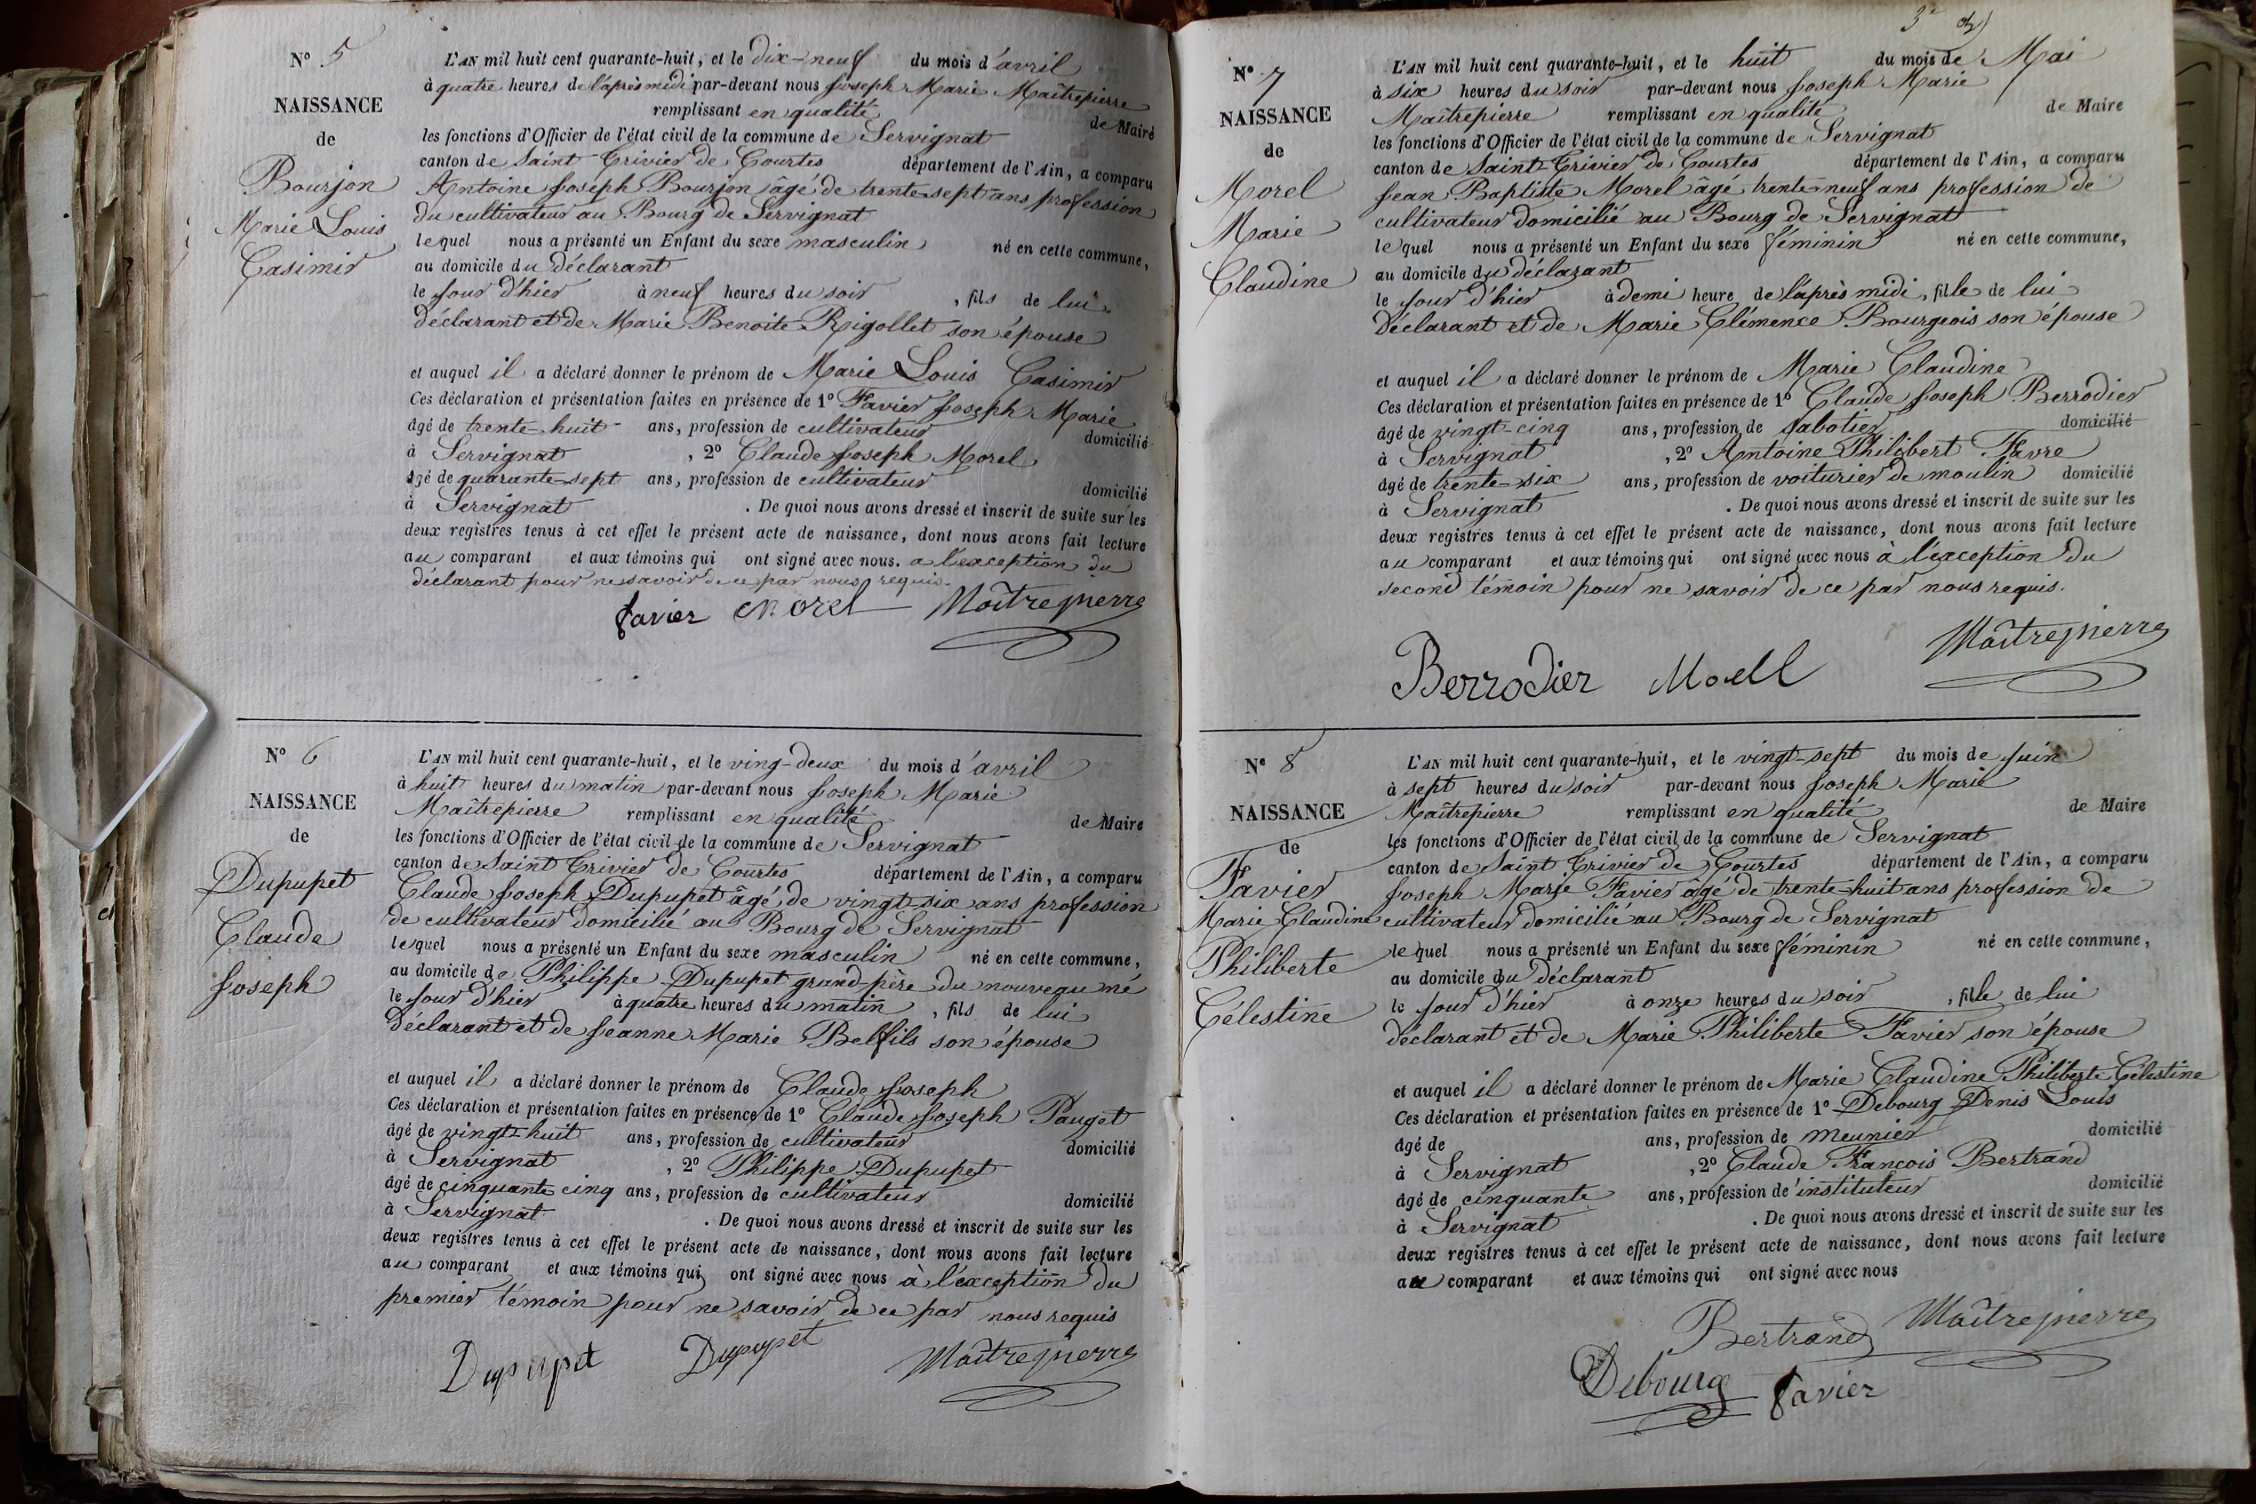 N° 5
NAISSANCE
de
Bourjon
Marie Louis
Casimir
L'AN mil huit cent quarante-huit, et le dix-neuf du mois d'avril
à quatre heures de l'après midi par-devant nous Joseph Marie Maîtrepierre
remplissant en qualité de Maire
les fonctions d'Officier de l'état civil de la commune de Servignat
canton de Saint Trivier de Courtes département de l'Ain, a comparu
Antoine Joseph Bourjon âgé de trente-sept ans profession
du cultivateur au Bourg de Servignat
lequel nous a présenté un Enfant du sexe masculin né en cette commune,
au domicile du déclarant
le jour d'hier à neuf heures du soir, fils de lui
déclarant et de Marie Benoite Rigollet son épouse
et auquel il a déclaré donner le prénom de Marie Louis Casimir
Ces déclaration et présentation faites en présence de 1° Favier Joseph Marie
âgé de trente-huit ans, profession de cultivateur domicilié
à Servignat, 2° Claude Joseph Morel
âgé de quarante-sept ans, profession de cultivateur domicilié
à Servignat. De quoi nous avons dressé et inscrit de suite sur les
deux registres tenus à cet effet le présent acte de naissance, dont nous avons fait lecture
au comparant et aux témoins qui ont signé avec nous. a l'exception du
déclarant pour ne savoir de ce par nous requis.
Favier Morel Maîtrepierre
N° 6
NAISSANCE
de
Dupupet
Claude
Joseph
L'AN mil huit cent quarante-huit, et le ving-deux du mois d'avril
à huit heures du matin par-devant nous Joseph Marie
Maîtrepierre remplissant en qualité de Maire
les fonctions d'Officier de l'état civil de la commune de Servignat
canton de Saint Trivier de Courtes département de l'Ain, a comparu
Claude Joseph Dupupet âgé de vingt-six ans profession
de cultivateur domicilié au Bourg de Servignat
lequel nous a présenté un Enfant du sexe masculin né en cette commune,
au domicile de Philippe Dupupet grand-père du nouveau né
le jour d'hier à quatre heures du matin, fils de lui
déclarant et de Jeanne Marie Belfils son épouse
et auquel il a déclaré donner le prénom de Claude Joseph
Ces déclaration et présentation faites en présence de 1° Claude Joseph Pauget
âgé de vingt-huit ans, profession de cultivateur domicilié
à Servignat, 2° Philippe Dupupet
âgé de cinquante cinq ans, profession de cultivateur domicilié
à Servignat. De quoi nous avons dressé et inscrit de suite sur les
deux registres tenus à cet effet le présent acte de naissance, dont nous avons fait lecture
au comparant et aux témoins qui ont signé avec nous à l'exception du
premier témoin pour ne savoir de ce par nous requis
Dupupet Dupupet Maîtrepierre
N° 7
NAISSANCE
de
Morel
Marie
Claudine
L'AN mil huit cent quarante-huit, et le huit du mois de Mai
à six heures du soir par-devant nous Joseph Marie
Maîtrepierre remplissant en qualité de Maire
les fonctions d'Officier de l'état civil de la commune de Servignat
canton de Saint Trivier de Courtes département de l'Ain, a comparu
Jean Baptiste Morel âgé trente-neuf ans profession de
cultivateur domicilié au Bourg de Servignat
lequel nous a présenté un Enfant du sexe féminin né en cette commune,
au domicile du déclarant
le jour d'hier à demi heure de l'après midi, fille de lui
déclarant et de Marie Clémence Bourgeois son épouse
et auquel il a déclaré donner le prénom de Marie Claudine
Ces déclaration et présentation faites en présence de 1° Claude Joseph Berrodier
âgé de vingt-cinq ans, profession de sabotier domicilié
à Servignat, 2° Antoine Philibert Favre
âgé de trente-six ans, profession de voiturier de moulin domicilié
à Servignat. De quoi nous avons dressé et inscrit de suite sur les
deux registres tenus à cet effet le présent acte de naissance, dont nous avons fait lecture
au comparant et aux témoins qui ont signé avec nous à l'exception du
second témoin pour ne savoir de ce par nous requis.
Maîtrepierre
Berrodier Morel
N° 8
NAISSANCE
de
Favier
Marie Claudine
Philiberte
Célestine
L'AN mil huit cent quarante-huit, et le vingt-sept du mois de Juin
à sept heures du soir par-devant nous Joseph Marie
Maîtrepierre remplissant en qualité de Maire
les fonctions d'Officier de l'état civil de la commune de Servignat
canton de Saint Trivier de Courtes département de l'Ain, a comparu
Joseph Marie Favier âgé de trente-huit ans profession de
cultivateur domicilié au Bourg de Servignat
lequel nous a présenté un Enfant du sexe féminin né en cette commune,
au domicile du déclarant
le jour d'hier à onze heures du soir, fille de lui
déclarant et de Marie Philiberte Favier son épouse
et auquel il a déclaré donner le prénom de Marie Claudine Philiberte Célestine
Ces déclaration et présentation faites en présence de 1° Debourg Denis Louis
âgé de ans, profession de meunier domicilié
à Servignat, 2° Claude François Bertrand
âgé de cinquante ans, profession de instituteur domicilié
à Servignat. De quoi nous avons dressé et inscrit de suite sur les
deux registres tenus à cet effet le présent acte de naissance, dont nous avons fait lecture
au comparant et aux témoins qui ont signé avec nous
Bertrand Maîtrepierre
Debourg Favier